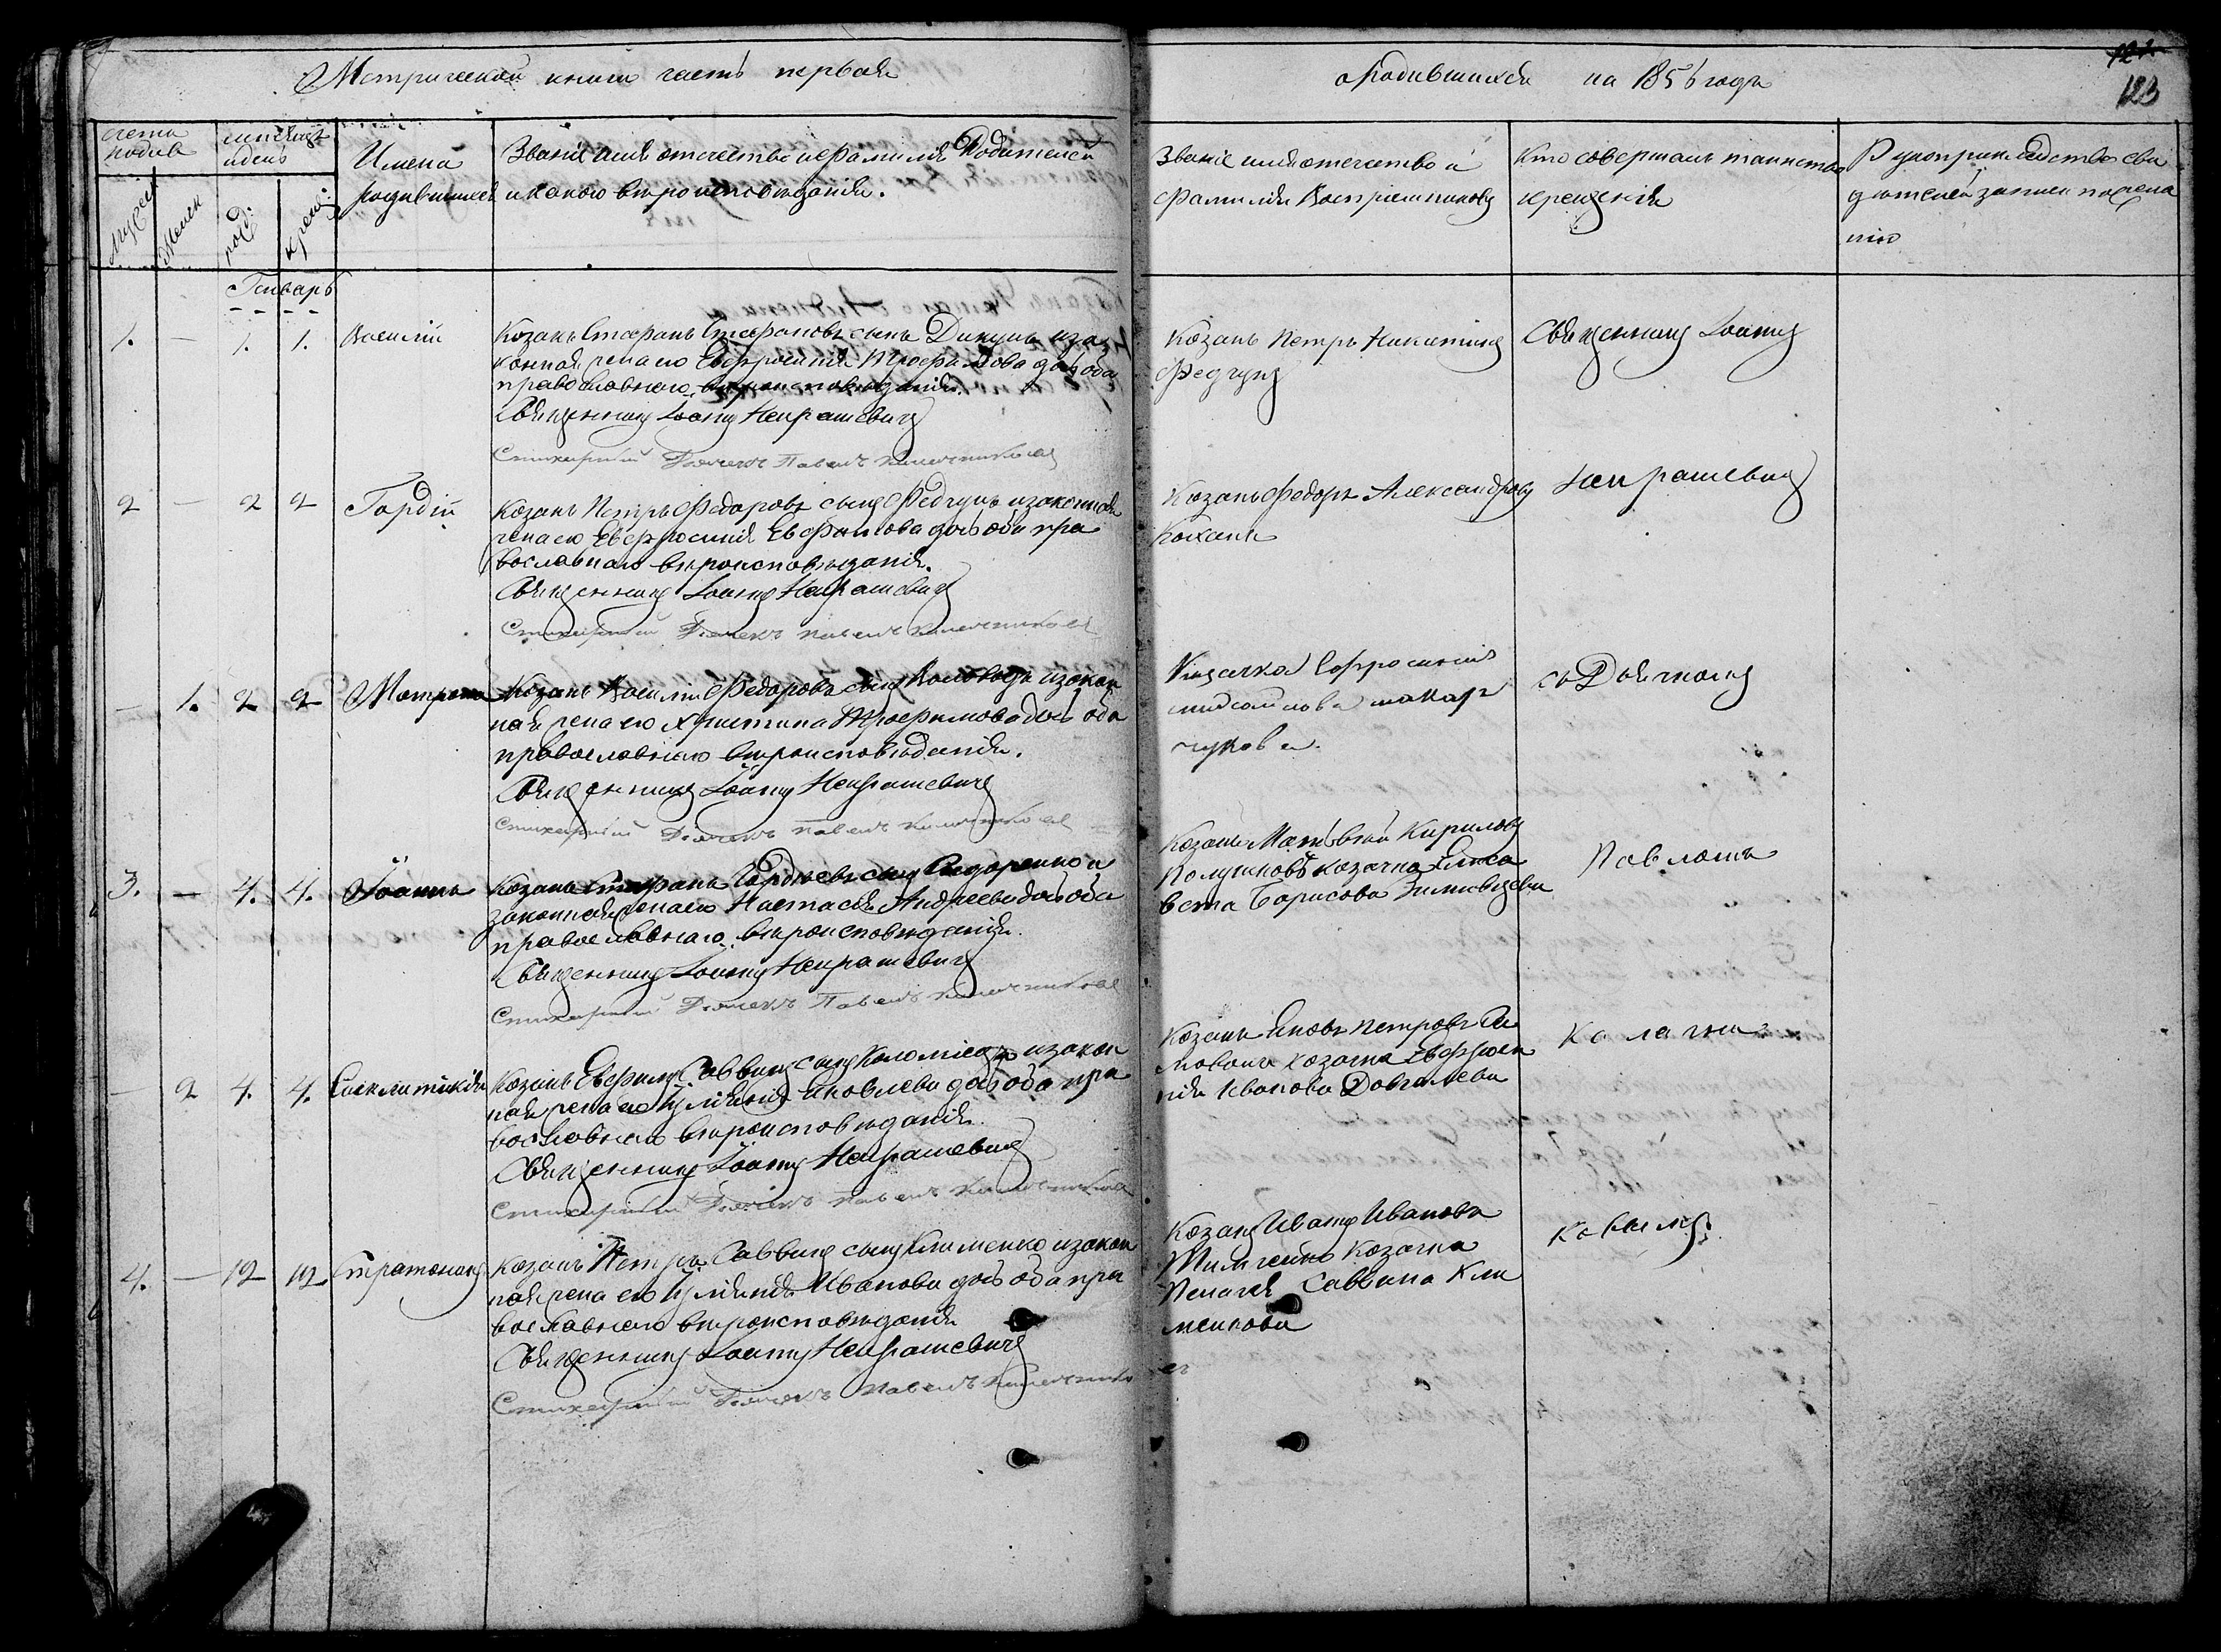 Метрической книги часть первая
о родившихся на 1856 годъ
123
счетъ родив
мѣсяцъ и день
Имена родившихся
Званіе имя отечество и фамилія Родителей
и какого вѣроисповѣданія.
Званіе имя отечество и
фамилія Воспріемниковъ
Кто совершалъ таинство
крещенія
Рукоприкладство сви
дѣтелей записи по жела
нію
Мужеск
Женск
рожд:
крещ:
Генварь
1. — 1. 1. Василій
Козакъ Стефанъ Стефановъ сынъ Дикунъ и за
конная жена его Евфросинія Трофимова дочь оба
православнаго вѣроисповѣданія.
Священникъ Іоаннъ
Стихарный Дьячекъ Павелъ
Козакъ Петръ Никитинъ
Федчунъ
Священникъ Іоаннъ
2 — 2 2 Гордій
Козакъ Петръ Федоровъ сынъ Федчунъ и законная
жена его Евфросинія Евфимова дочь оба пра
вославнаго вѣроисповѣданія.
Священникъ Іоаннъ
Стихарный Дьячекъ Павелъ
Козакъ Федоръ Александровъ
Коханъ
— 1. 2 2 Матрона
Козакъ Василій Федоровъ сынъ и закон
ная жена его Христина Трофимова дочь оба
православнаго вѣроисповѣданія.
Священникъ Іоаннъ
Стихарный Дьячекъ Павелъ
Козачка Ефросинія
Макар
чукова.
съ Дьячкомъ
3. — 4. 4. Іоаннъ
Козакъ Стефанъ Гордѣевъ сынъ Сидоренко и
законная жена его Настасія Андреева дочь оба
православнаго вѣроисповѣданія.
Священникъ Іоаннъ
Стихарный Дьячекъ Павелъ
Козакъ Матвѣй Кириловъ
козачка Елиса
вета Борисова
Павломъ
— 2 4. 4. Синклитикія
Козакъ Евфимъ Саввинъ сынъ Коломіецъ и закон
ная жена его Іуліянія Яковлева дочь оба пра
вославнаго вѣроисповѣданія.
Священникъ Іоаннъ
Стихарный Дьячекъ Павелъ
Козакъ Яковъ Петровъ
козачка Евфроси
нія Иванова Довгалева
4. — 12 12 Стратоникъ
Козакъ Петръ Саввинъ сынъ Клименко и закон
ная жена его Іуліянія Иванова дочь оба пра
вославнаго вѣроисповѣданія
Священникъ Іоаннъ
Стихарный Дьячекъ Павелъ
Козакъ Иванъ Ивановъ
Козачка
Пелагія Саввина Кли
менкова